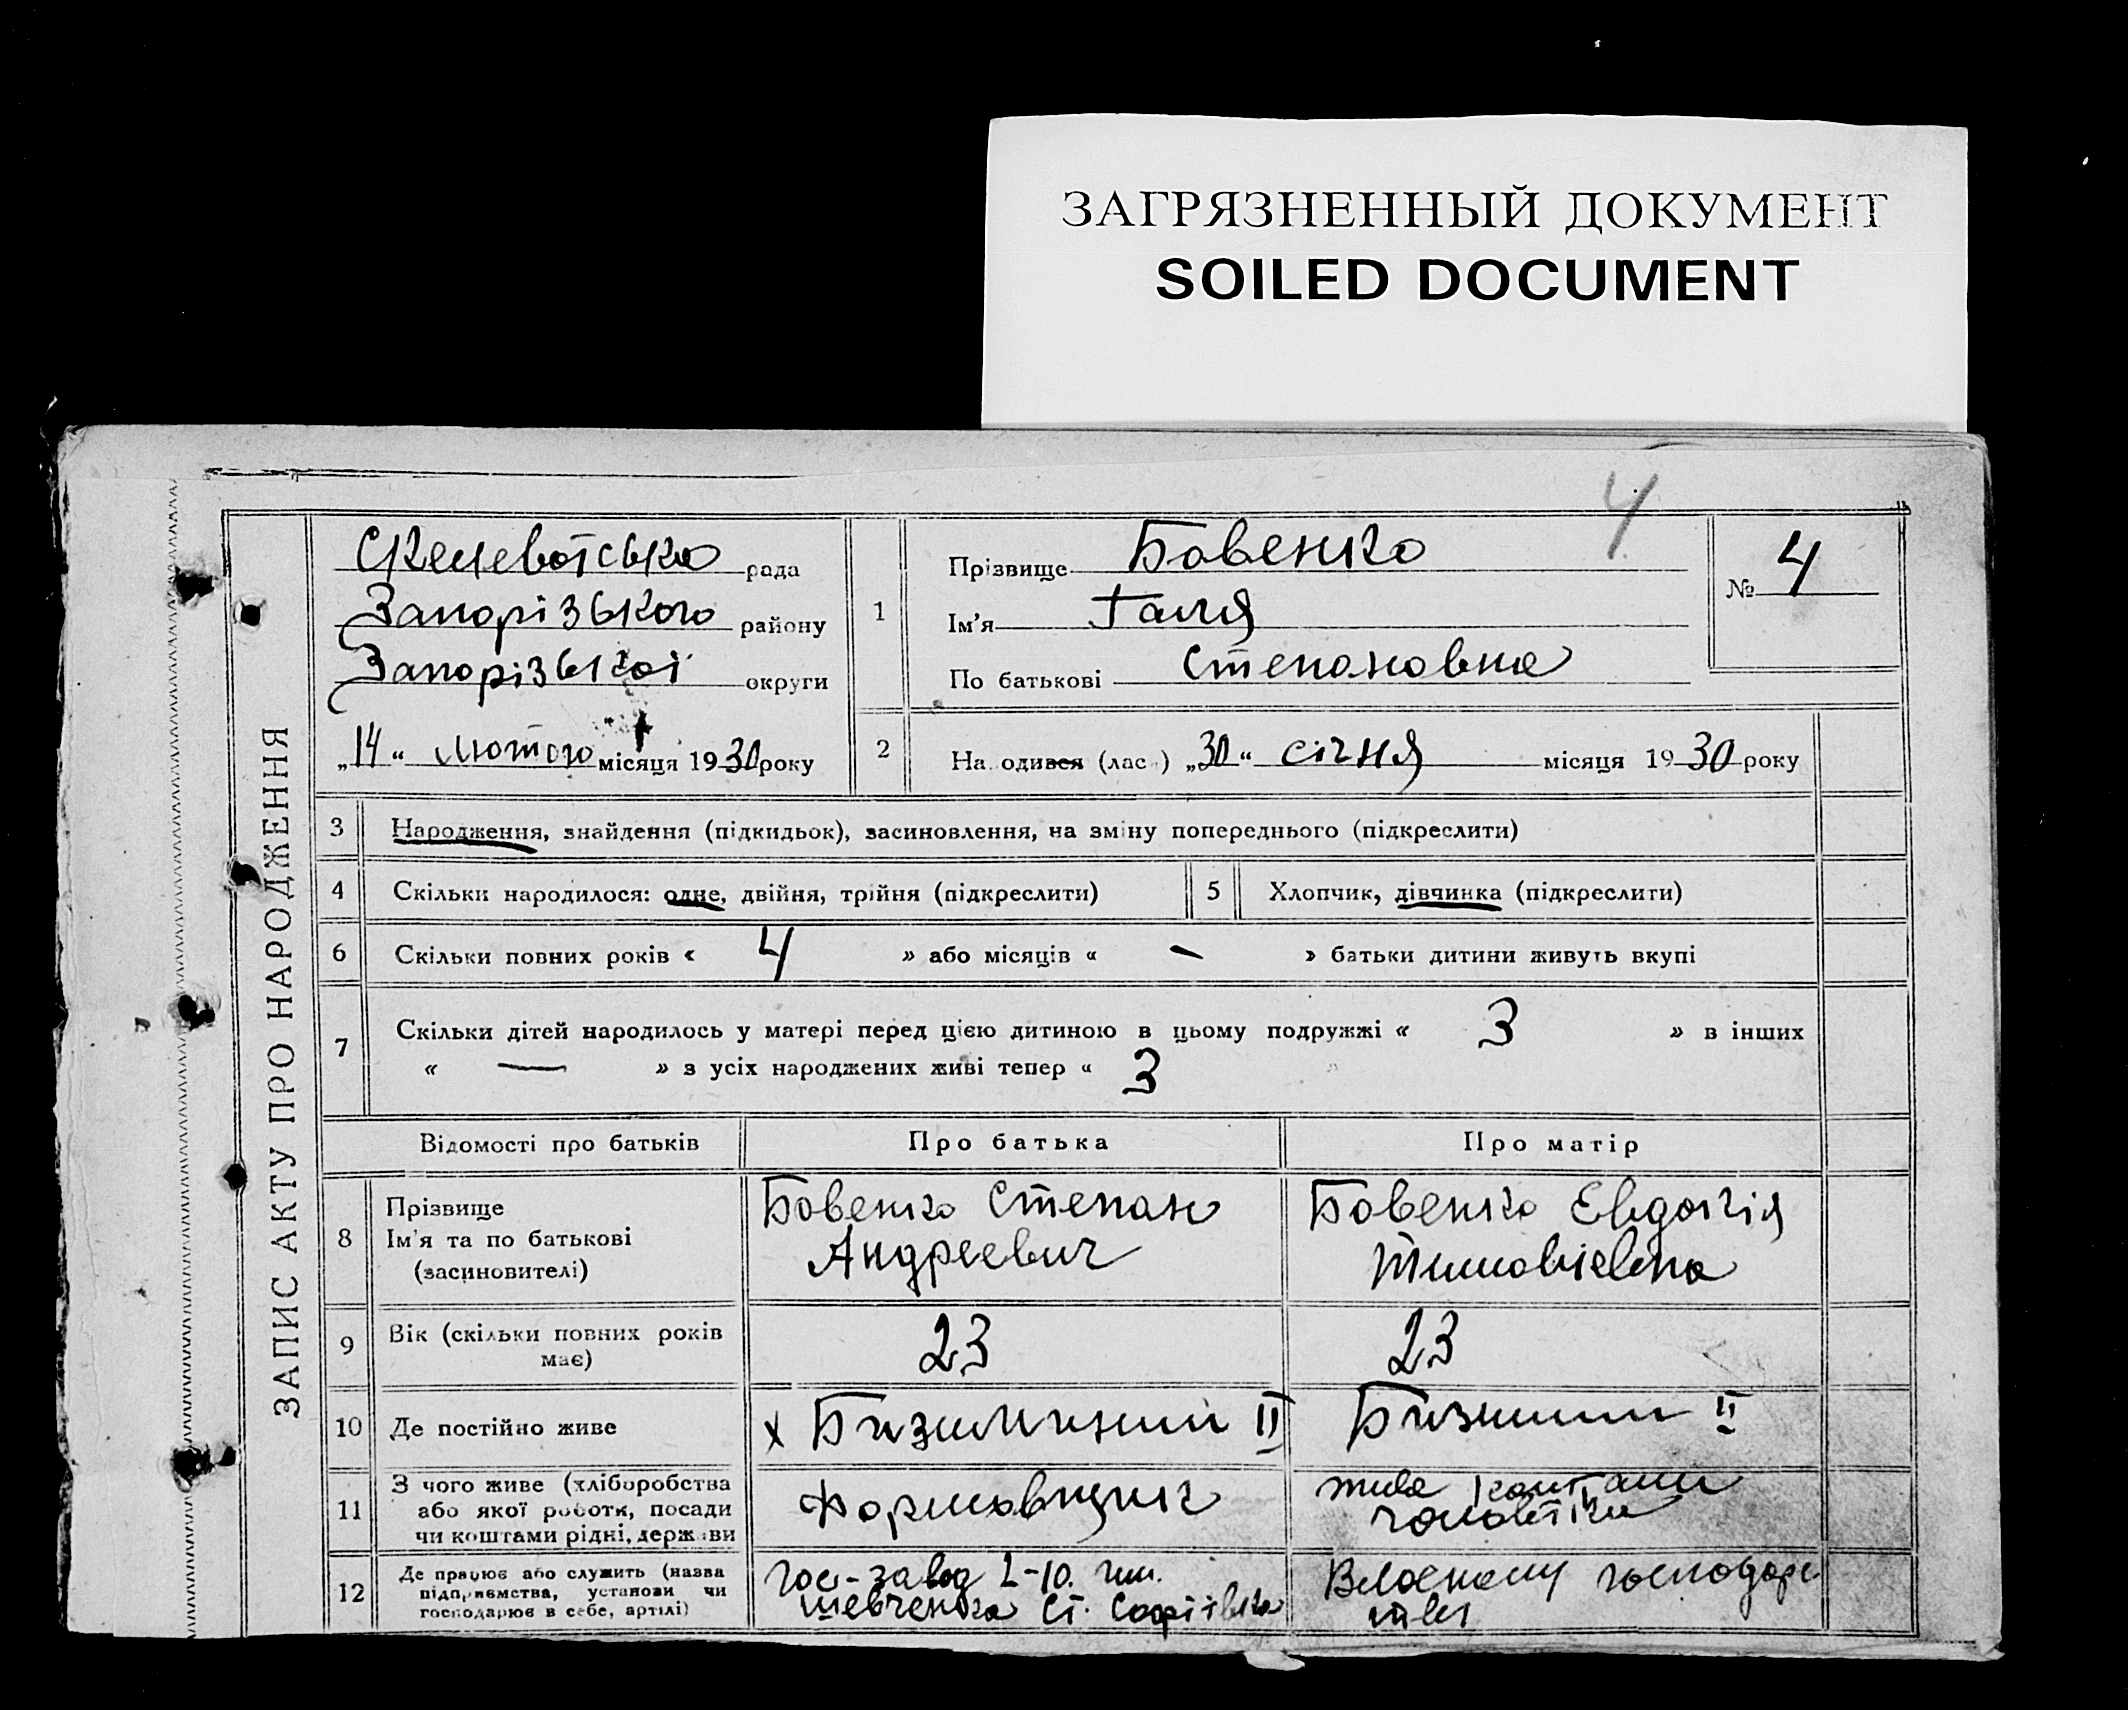 ЗАГРЯЗНЕННЫЙ ДОКУМЕНТ
SOILED DOCUMENT
4
ЗАПИС АКТУ ПРО НАРОДЖЕННЯ
рада
Запорізького району
Запорізької округи
„14“ лютого місяця 1930 року
1
Прізвище Бовенко
Ім'я Галя
По батькові Степановна
№ 4
2
На одився (лась) „30“ січня місяця 1930 року
3 Народження, знайдення (підкидьок), засиновлення, на зміну попереднього (підкреслити)
4 Скільки народилося: одне, двійня, трійня (підкреслити)
5 Хлопчик, дівчинка (підкреслити)
6 Скільки повних років « 4 » або місяців « — » батьки дитини живуть вкупі
7 Скільки дітей народилось у матері перед цією дитиною в цьому подружжі « 3 » в інших
« — » з усіх народжених живі тепер « 3
Відомості про батьків Про батька Про матір
8
Прізвище
Ім'я та по батькові
(засиновителі)
Бовенко Степан
Андреевич
Бовенко Евдокія
9
Вік (скільки повних років
має)
23
23
10 Де постійно живе
х II
II
11
З чого живе (хліборобства
або якої роботи, посади
чи коштами рідні, держави
Формовщик
живе коштами
чоловіка
12
Де працює або служить (назва
підприємства, установи чи
господарює в себе, артілі)
Гос-завод
Шевченка ст. Софіївка
господарс
тві